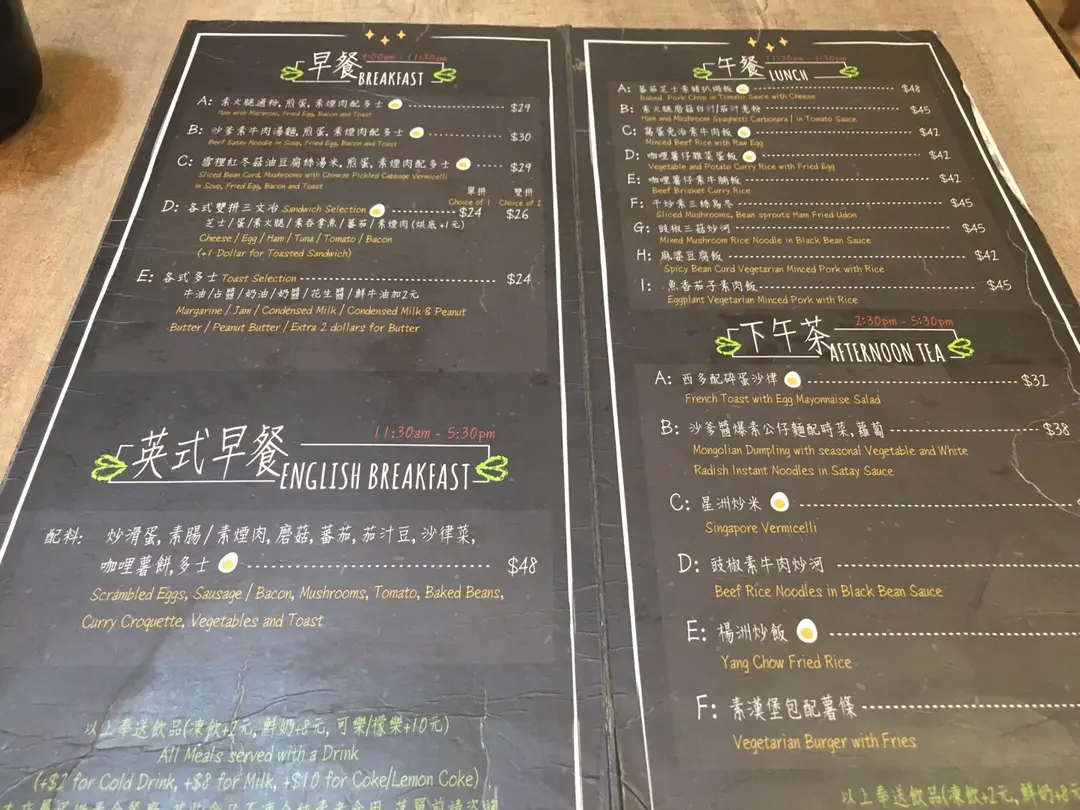 早餐 BREAKFAST
A: 素火腿通粉, 煎蛋, 素煙肉配多士 $29
Ham with Macaroni, Fried Egg, Bacon and Toast
B: 沙爹素牛肉湯麵, 煎蛋, 素煙肉配多士 $30
Beef Satay Noodle in Soup, Fried Egg, Bacon and Toast
C: 雪裡紅冬菇油豆腐絲湯米, 煎蛋, 素煙肉配多士 $29
Sliced Bean Curd, Mushrooms with Chinese Pickled Cabbage Vermicelli
in Soup, Fried Egg, Bacon and Toast
單拼 雙拼
Choice of 1 Choice of 2
D: 各式雙拼三文冶 Sandwich Selection $24 $26
芝士/蛋/素火腿/素吞拿魚/蕃茄/素煙肉 (烘底+1元)
Cheese / Egg / Ham / Tuna / Tomato / Bacon
(+1 Dollar for Toasted Sandwich)
E: 各式多士 Toast Selection $24
牛油/占醬/奶油/奶醬/花生醬/鮮牛油加2元
Margarine / Jam / Condensed Milk / Condensed Milk & Peanut
Butter / Peanut Butter / Extra 2 dollars for Butter
11:30am - 5:30pm
英式早餐 ENGLISH BREAKFAST
配料: 炒滑蛋, 素腸/素煙肉, 磨菇, 蕃茄, 茄汁豆, 沙律菜,
咖哩薯餅, 多士 $48
Scrambled Eggs, Sausage / Bacon, Mushrooms, Tomato, Baked Beans,
Curry Croquette, Vegetables and Toast
以上奉送飲品(凍飲+2元, 鮮奶+8元, 可樂/檬樂+10元)
All Meals served with a Drink
(+$2 for Cold Drink, +$8 for Milk, +$10 for Coke/Lemon Coke)
午餐 LUNCH
A: 蕃茄芝士素豬扒焗飯 $48
Baked Pork Chop in Tomato Sauce with Cheese
B: 素火腿磨菇白汁/茄汁意粉 $45
Ham and Mushroom Spaghetti Carbonara / in Tomato Sauce
C: 窩蛋免治素牛肉飯 $42
Minced Beef Rice with Raw Egg
D: 咖哩薯仔雜菜蛋飯 $42
Vegetable and Potato Curry Rice with Fried Egg
E: 咖哩薯仔素牛腩飯 $42
Beef Brisket Curry Rice
F: 干炒素三絲烏冬 $45
Sliced Mushrooms, Bean sprouts Ham Fried Udon
G: 豉椒三菇炒河 $45
Mixed Mushroom Rice Noodle in Black Bean Sauce
H: 麻婆豆腐飯 $42
Spicy Bean Curd Vegetarian Minced Pork with Rice
I: 魚香茄子素肉飯 $45
Eggplant Vegetarian Minced Pork with Rice
2:30pm - 5:30pm
下午茶 AFTERNOON TEA
A: 西多配碎蛋沙律 $32
French Toast with Egg Mayonnaise Salad
B: 沙爹醬爆素公仔麵配時菜, 蘿蔔 $38
Mongolian Dumpling with seasonal Vegetable and White
Radish Instant Noodles in Satay Sauce
C: 星洲炒米
Singapore Vermicelli
D: 豉椒素牛肉炒河
Beef Rice Noodles in Black Bean Sauce
E: 楊洲炒飯
Yang Chow Fried Rice
F: 素漢堡包配薯條
Vegetarian Burger with Fries
以上奉送飲品(凍飲+2元, 鮮奶+8元